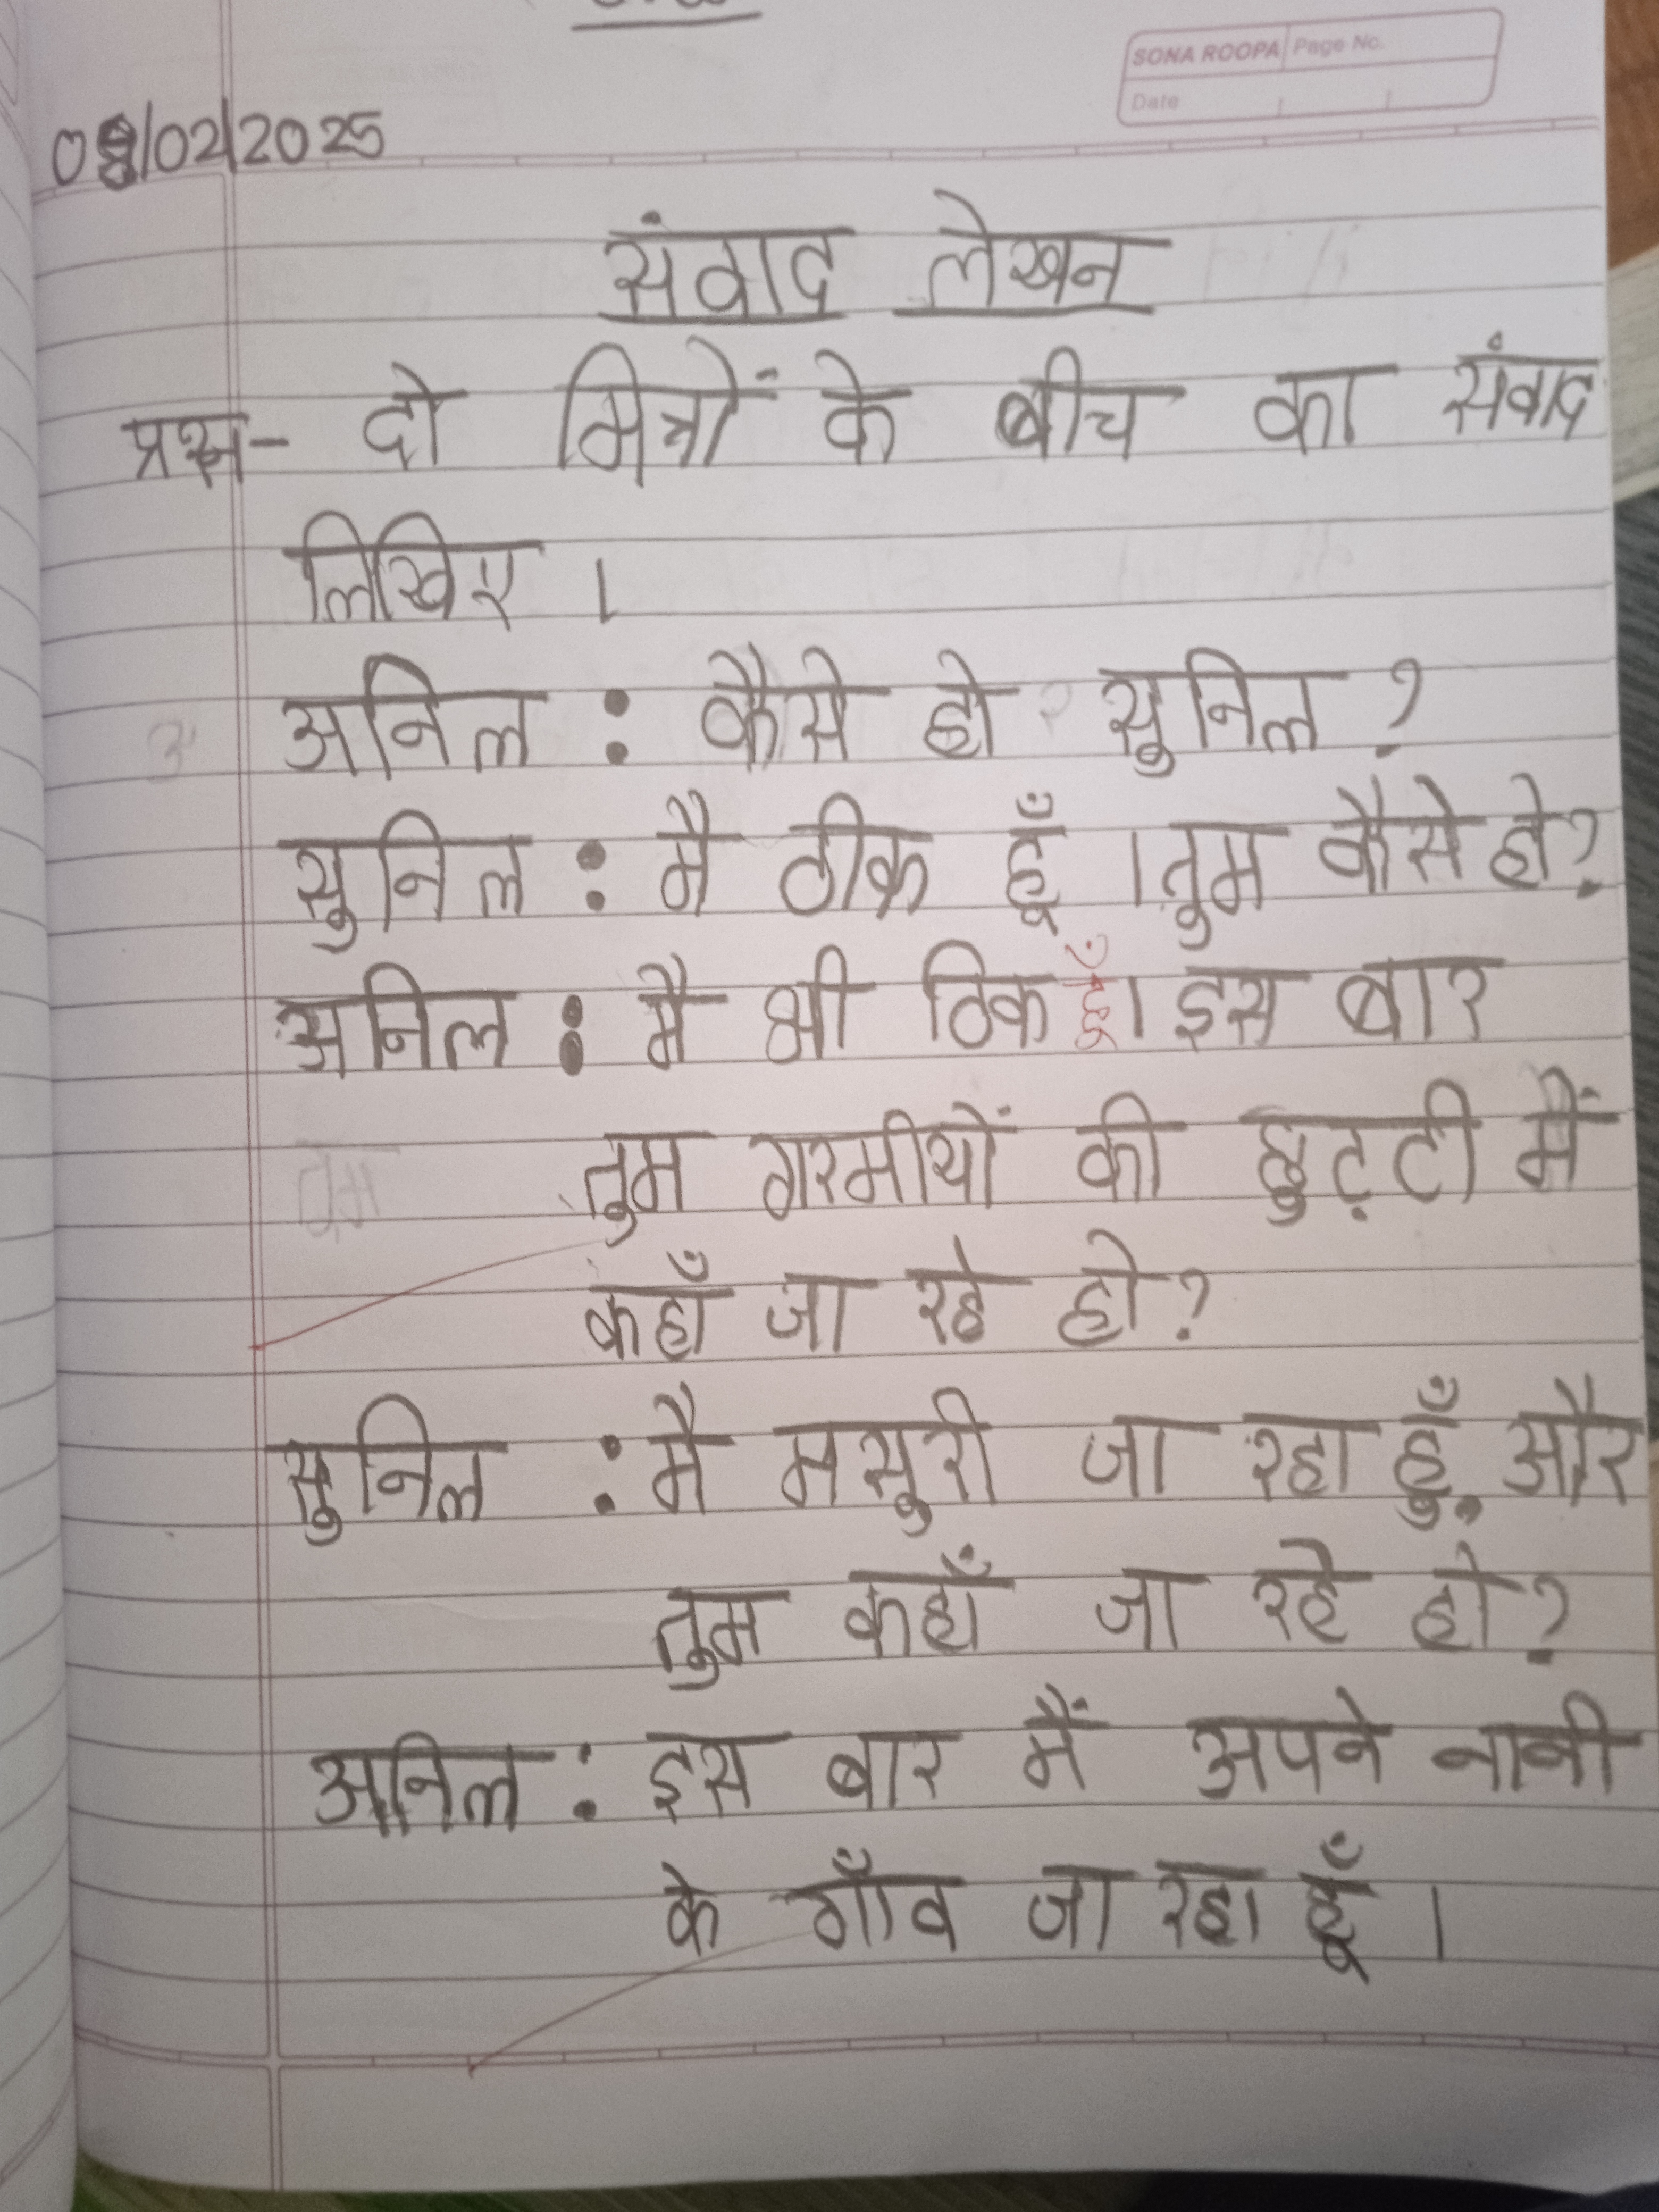 SONA ROOPA Page No.
Date
08/02/2025
संवाद लेखन
प्रश्न- दो मित्रों के बीच का संवाद
लिखिए ।
अनिल : कैसे हो सुनिल ?
सुनिल : मै ठीक हूँ । तुम कैसे हो?
अनिल : मै भी ठिक हूँ। इस बार
तुम गरमीयों की छुट्टी में
कहाँ जा रहे हो?
सुनिल : मै मसुरी जा रहा हूँ. और
तुम कहाँ जा रहे हो?
अनिल : इस बार मैं अपने नानी
के गाँव जा रहा हूँ ।